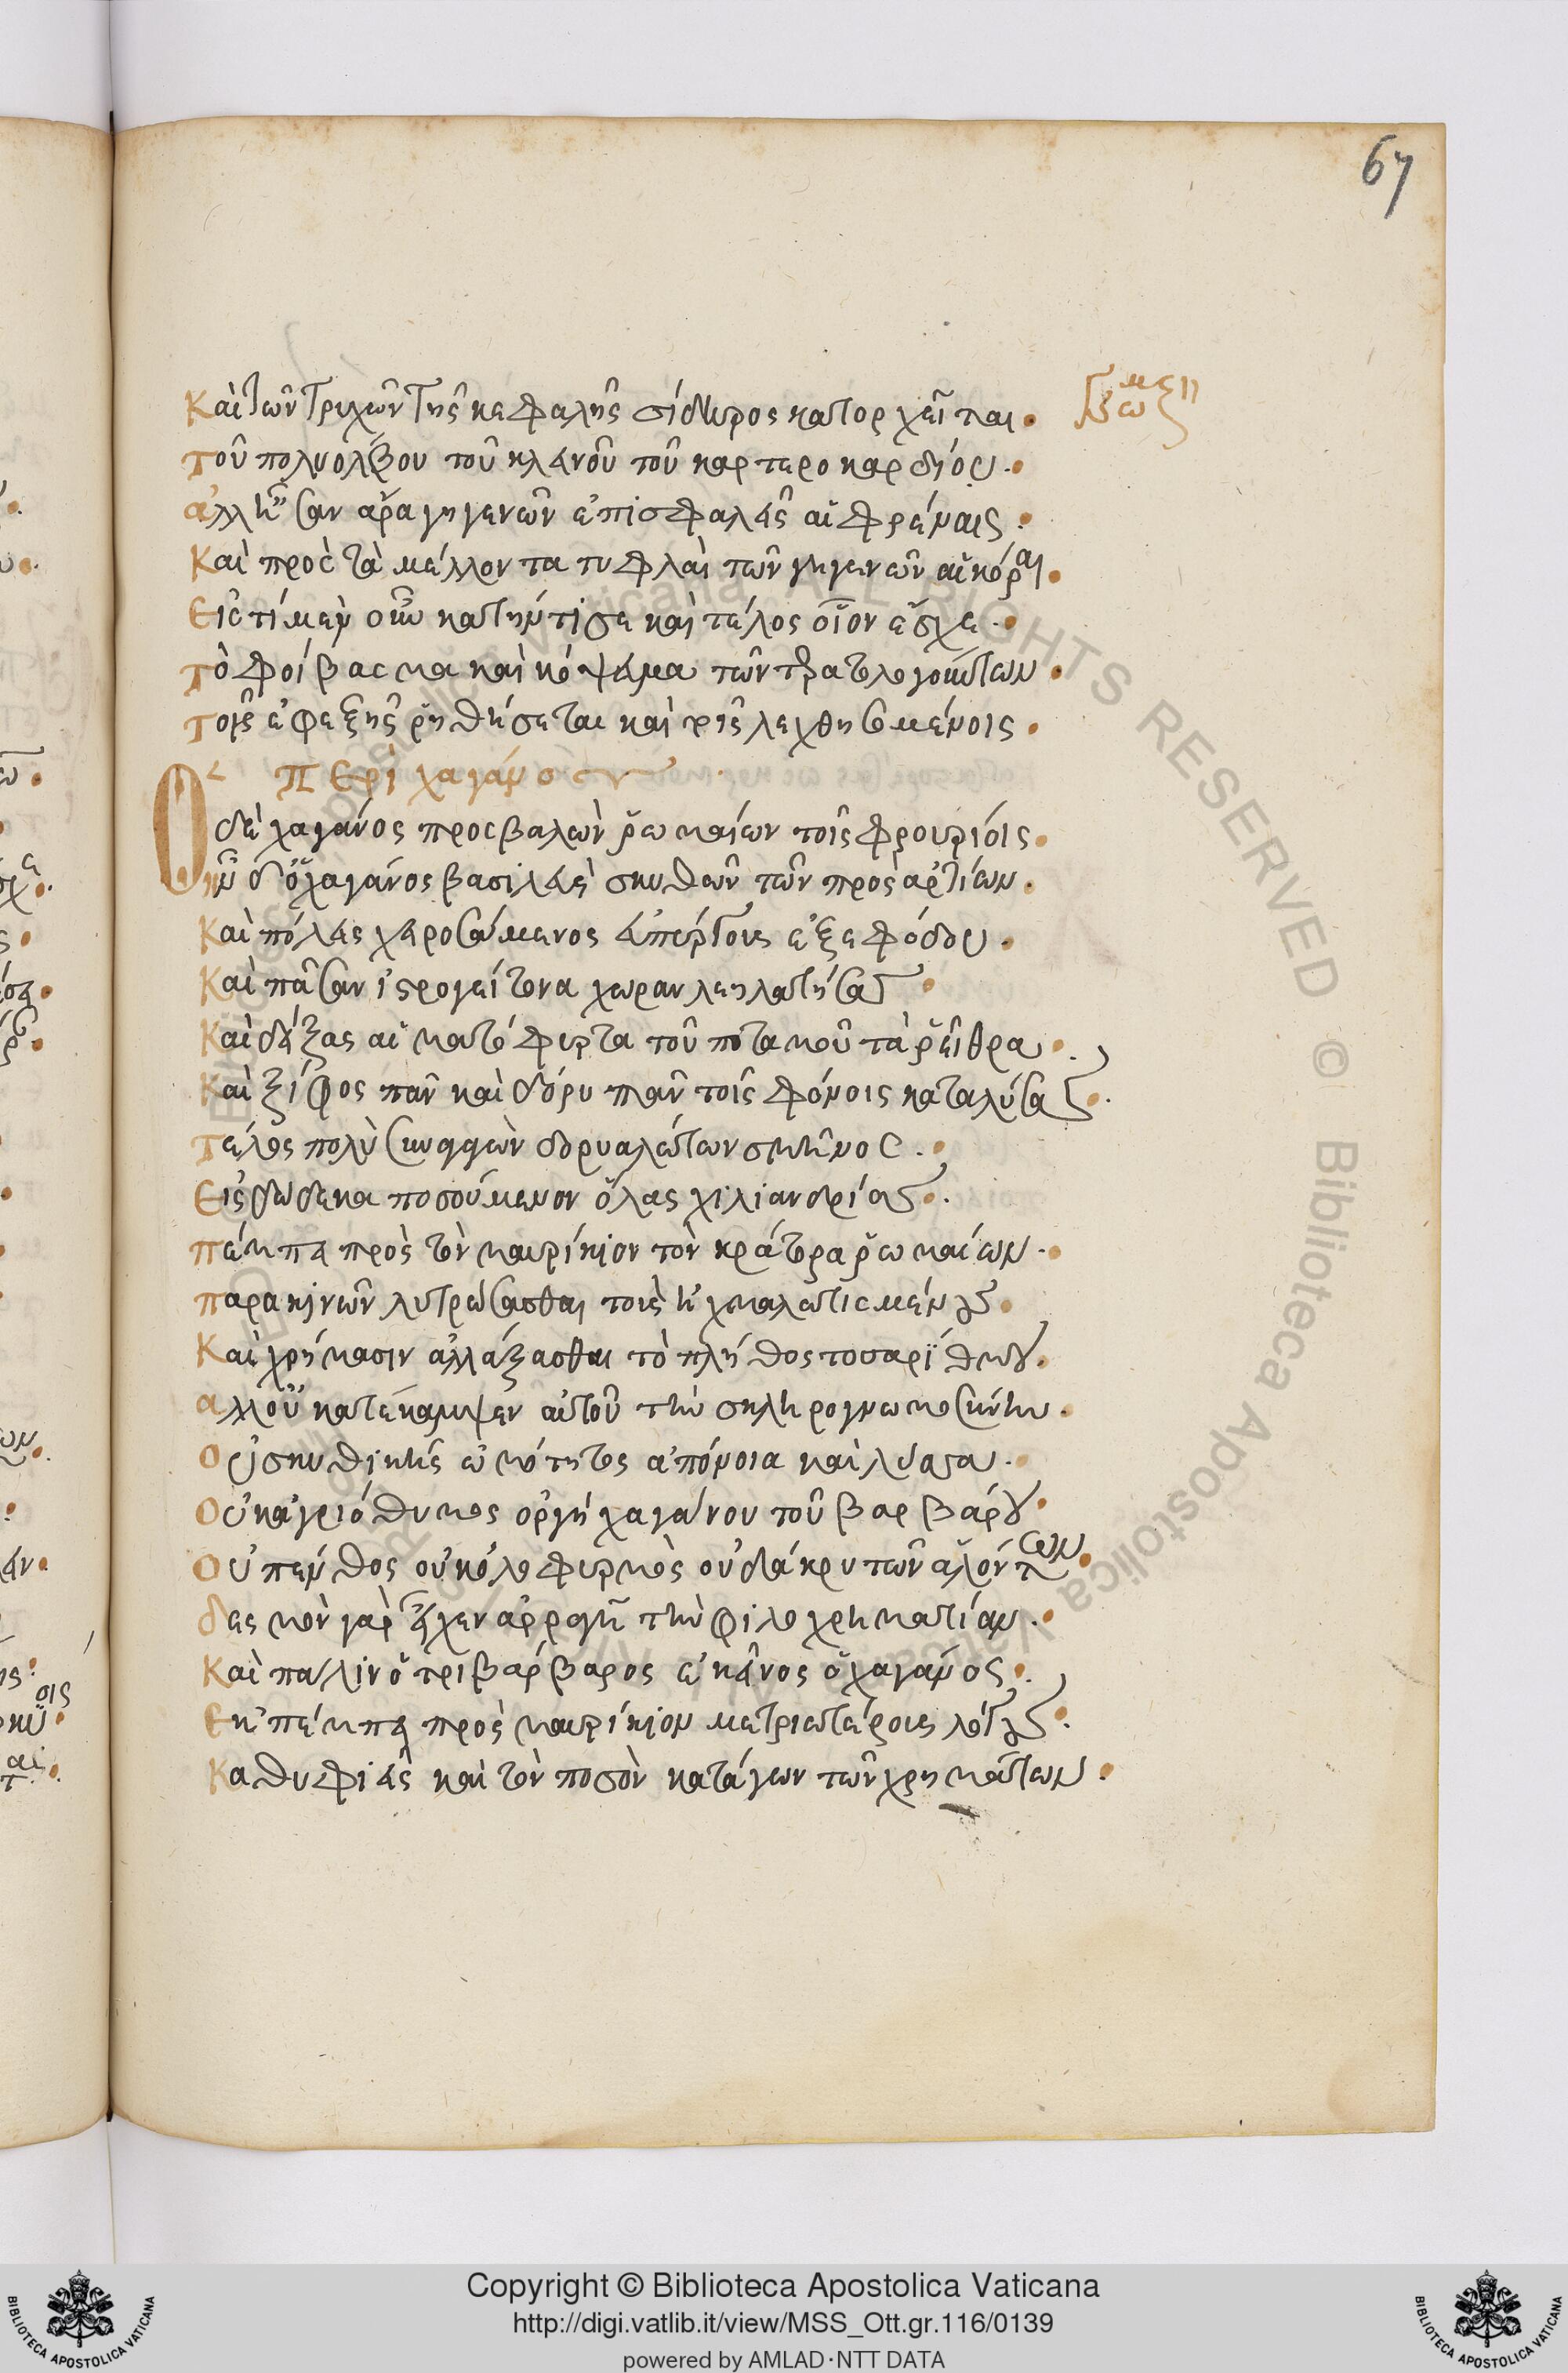 67
Καὶ τῶν τριχῶν τῆς κεφαλῆς σίδηρος κατορχεῖται.
τοῦ πολυόλβου τοῦ κλεινοῦ τοῦ καρτεροκαρδίου.
ἀλλ' ἦσαν ἄρα γηγενῶν ἐπισφαλεῖς αἱ φρένες.
Καὶ πρὸς τὰ μέλλοντα τυφλαὶ τῶν γηγενῶν αἱ κόραι.
Εἰς τί μὲν οὖν κατήντησε καὶ τέλος οἷον ἔσχε.
τὸ φοίβασμα καὶ κόψευμα τῶν τερατολογούντων.
τοῖς ἐφεξῆς ῥηθήσεται καὶ τοῖς λεχθησομένοις.
Περὶ χαγάνου
Ὁ δὲ χαγάνος προσβαλὼν ῥωμαίων τοῖς φρουρίοις.
ἦν δ' ὁ χαγάνος βασιλεὺς σκυθῶν τῶν προσαρκτίων.
Καὶ πόλεις χειρωσάμενος εὐπύργους ἐξ ἐφόδου.
Καὶ πᾶσαν ἰστρογείτονα χώραν λεηλατήσας
Καὶ δείξας αἱματόφυρτα τοῦ ποταμοῦ τὰ ῥεῖθρα.
Καὶ ξίφος πᾶν καὶ δόρυ πᾶν τοῖς φόνοις καταλύσας.
τέλος πολὺ συναγαγὼν δορυαλώτων σμῆνος.
Εἰς δώδεκα ποσούμενον ὅλας χιλιανδρίας.
πέμπει πρὸς τὸν μαυρίκιον τὸν κράτορα ῥωμαίων.
παρακινῶν λυτρώσασθαι τοὺς ἠχμαλωτισμένους.
Καὶ χρήμασιν ἀλλάξασθαι τὸ πλῆθος τοσαρίθμου.
ἀλλ' οὐ κατέκαμψεν αὐτοῦ τὴν σκληρογνωμοσύνην.
Οὐ σκυθικῆς ὠμότητος ἀπόνοια καὶ λύσσα.
Οὐκ ἀγριόθυμος ὀργὴ χαγάνου τοῦ βαρβάρου.
Οὐ πένθος οὐκ ὀλοφυρμὸς οὐ δάκρυ τῶν ἁλόντων.
δεσμὸν γὰρ εἶχεν ἀρραγῆ τὴν φιλοχρηματίαν.
Καὶ πάλιν ὁ τριβάρβαρος ἐκεῖνος ὁ χαγάνος.
Ἐκπέμπει πρὸς μαυρίκιον μετριωτέρους λόγους.
Καθυφιεὶς καὶ τὸν ποσὸν κατάγων τῶν χρημάτων.
Copyright © Biblioteca Apostolica Vaticana
http://digi.vatlib.it/view/MSS_Ott.gr.116/0139
powered by AMLAD·NTT DATA
BIBLIOTECA APOSTOLICA VATICANA
BIBLIOTECA APOSTOLICA VATICANA